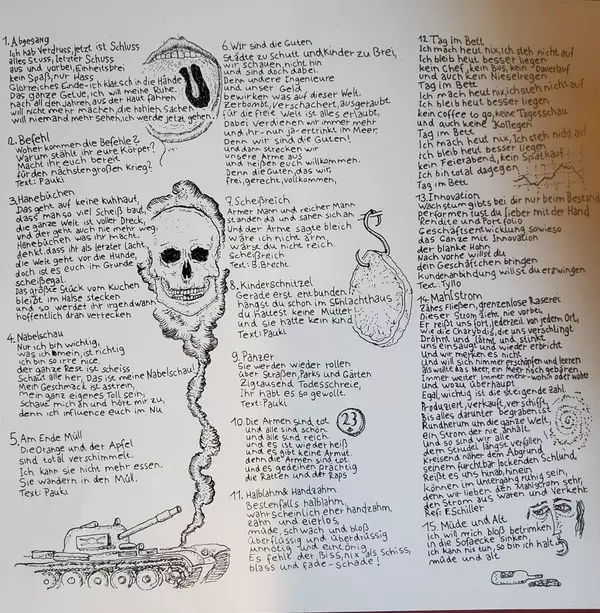 1. Abgesang
Ich hab Verdruss, jetzt ist Schluss
alles Stuss, letzter Schuss
aus und vorbei, Einheitsbrei
kein Spaß, nur Hass
Glorreiches Ende- ich klatsch in die Hände
Das ganze Getue, ich will meine Ruhe.
nach all den Jahren, aus der Haut fahren
will nicht mehr machen, die hohlen Sachen
will niemand mehr sehen, ich werde jetzt gehen
2. Befehl
Woher kommen die Befehle?
Warum stählt ihr eure Körper?
Macht ihr euch bereit
für den nächsten großen Krieg?
Text: Pauki
3. Hanebüchen
Das geht auf keine Kuhhaut,
dass mango viel Scheiß baut,
die ganze Welt ist voller Dreck,
und der geht auch nie mehr weg.
Hanebüchen was ihr macht.
denkt, dass ihr als letzter lacht
die Welt geht vor die Hunde,
doch ist es euch im Grunde
scheißegal.
Das größte Stück vom Kuchen
bleibt im Halse stecken
und so werdet ihr irgendwann
hoffentlich dran verrecken
4. Nabelschau
Nur ich bin wichtig,
was ich mein, ist richtig
ich bin so irre nice,
der ganze Rest ist scheiss
Schaut alle her, Das ist meine Nabelschau!
Mein Geschmack ist astrein,
mein ganz eigenes Toll sein,
Schaut mich an und hört mir zu,
denn ich influence euch im Nu
5. Am Ende Müll
Die Orange und der Apfel
sind total verschimmelt.
Ich kann sie nicht mehr essen.
Sie wandern in den Müll.
Text: Pauki
6. Wir sind die Guten
Städte zu Schutt und Kinder zu Brei,
wir schauen nicht hin
und sind doch dabei.
Denn unsere Ingenieure
und unser Geld
bewirken was auf dieser Welt.
Zerbombt, verschachert, ausgeraubt
für die freie Welt ist alles erlaubt,
Dabei verdienen wir immer mehr
und ihr - nun ja - ertrinkt im Meer.
Denn wir sind die Guten!
Und dann strecken wir
unsere Arme aus
und heißen euch willkommen.
Denn die Guten, das wir,
frei, gerecht, vollkommen,
7. Scheßreich
Armer Mann und reicher Mann
standen da und sahen sich an
und der Arme sagte bleich
wäre ich nicht arm
wärst du nicht reich.
Scheißreich
Text: B. Brecht
8. Kinderschnitzel
Gerade erst entbunden
hängst du schon im Schlachthaus
du hattest keine Mutter
und sie hatte kein Kind
Text: Pauki
9. Panzer
Sie werden wieder rollen
über Straßen, Parks und Gärten
Zigtausend Todesschreie,
ihr habt es so gewollt.
Text: Pauki
10. Die Armen sind tot
und alle sind schön.
und alle sind reich
und es ist wieder heiß
und es gibt keine Armut
denn die Armen sind tot
und es gedeihen prächtig
die Ratten und der Raps
23
11. Halblahm & Handzahm
Bestenfalls halblahm,
wahrscheinlich eher handzahm,
zahm und eierlos,
müde, schwach und bloß
überflüssig und überdrüssig
unnötig und eintönig
Es fehlt der Biss, nix als Schiss,
blass und fade - Schade!
12. Tag im Bett
Ich mach heut nix, ich steh nicht auf
Ich bleib heut besser liegen
kein Chef, kein Bus, kein Dauerlauf
und auch kein Nieselregen
Tag im Bett
Ich mach heut nix, ich steh nicht auf
Ich bleib heut besser liegen
kein coffee to go, keine Tagesschau
und auch keine Kollegen
Tag im Bett
Ich mach heut nix, Ich steh nicht auf
Ich bleib heut besser liegen
kein Feierabend, kein Spätkauf
Ich bin total dagegen
Tag im Bett
13. Innovation
Wachstum gibts bei dir nur beim Bestand
performen tust du lieber mit der Hand
Rendite und Portfolio
Geschäftsentwicklung sowieso
das Ganze mit Innovation
der blanke Hohn
Nach vorne willst du
dein Geschäftchen bringen
Kundenanbindung willst du erzwingen
Text: Tyllo
14. Mahlstrom
Zähes Fließen, grenzenlose Raserei
Dieser Strom zieht nie vorbei,
Er reißt uns fort, jederzeit von jedem Ort,
Wie die Charybdis, die uns verschlingt
Dröhnt und lärmt und stinkt
uns einsaugt und wieder erbricht
Und wir merken es nicht
Und will sich nimmer erschöpfen und leeren
als wollte das Meer, ein Meer noch gebären
Immer weiter immer mehr - wohin oder woher
und wozu überhaupt
Egal, wichtig ist die steigende Zahl
Produziert, verkauft, verschifft,
Bis alles darunter begraben ist
Rundherum um die ganze Welt,
ein Strom der nie anhält.
und so sind wir alle
dem Strudel längst verfallen
kreisend näher dem Abgrund
seinem furchtbar lockenden Schlund,
Reißt es uns hinab, hinein
können im Untergang ruhig sein,
denn wir lieben den Mahlstrom sehr,
den Strom aus Waren und Verkehr
Ref: F. Schiller
15. Müde und Alt
Ich will mich bloß betrinken
in die Sofaecke sinken
ich kann nix tun, so bin ich halt
müde und alt